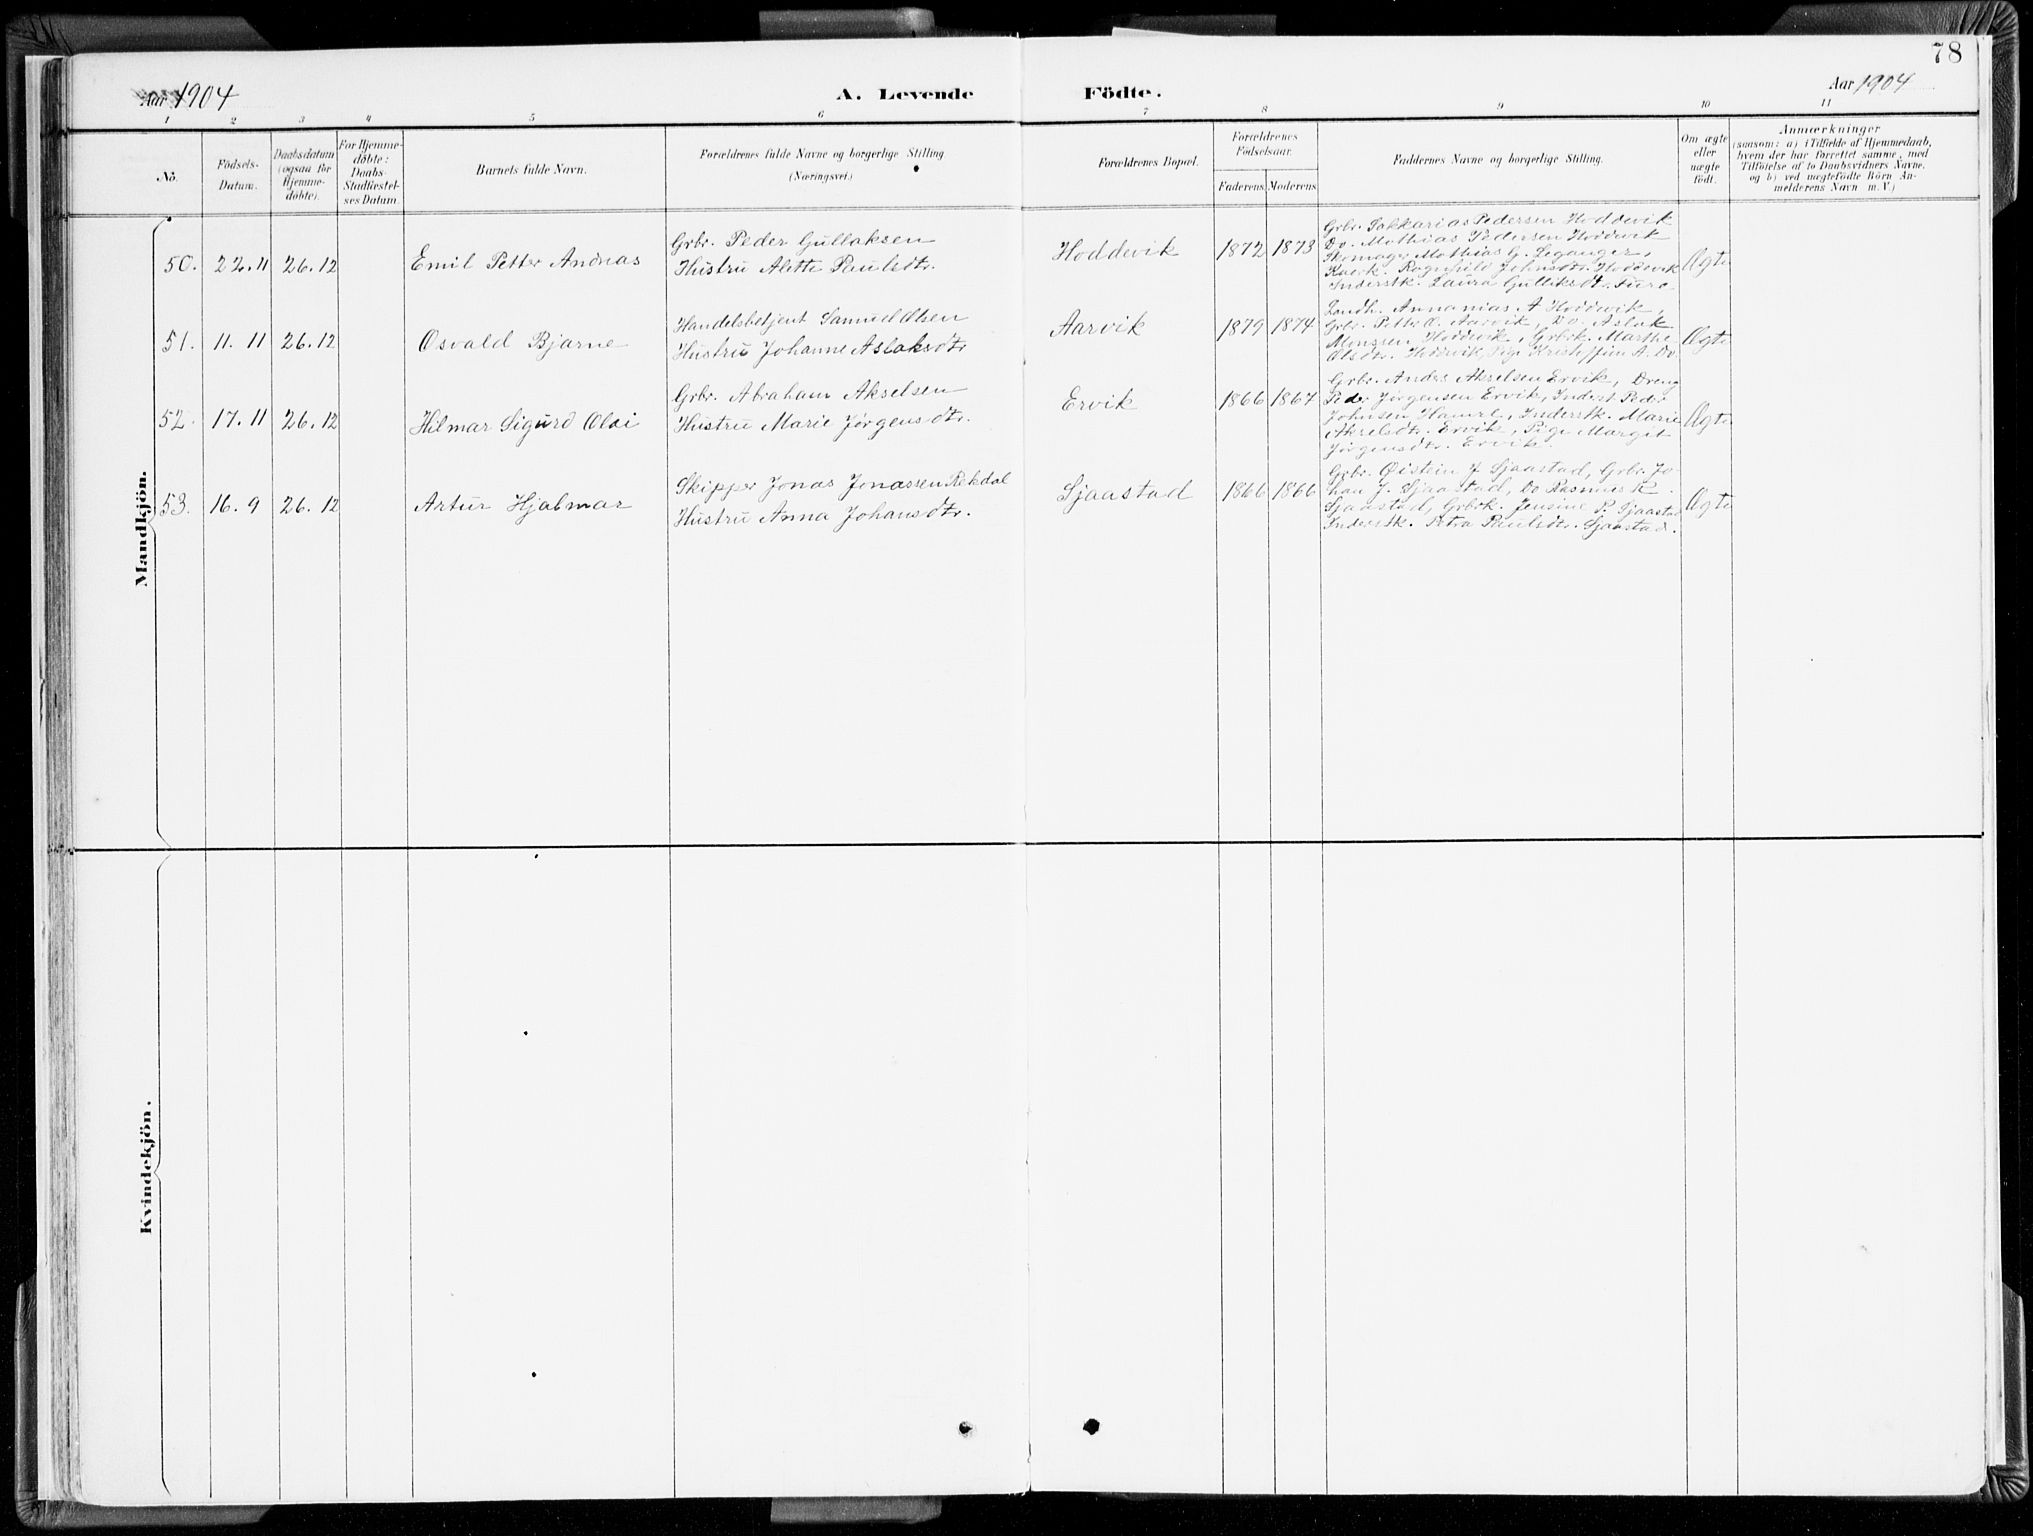 78
Aar 1904
A. Levende Födte.
Aar 1904
1 2 3 4 5 6 7 8 9 10 11
No.
Födsels-
Datum.
Daabsdatum
(ogsaa for
Hjemme-
döbte).
For Hjemme-
döbte:
Daabs-
Stadfæstel-
ses Datum.
Barnets fulde Navn.
Forældrenes fulde Navne og borgerlige Stilling
(Næringsvei.)
Forældrenes Bopæl.
Forældrenes
Födselsaar.
Faderens. Moderens.
Faddernes Navne og borgerlige Stilling.
Om ægte
eller
uægte
födt.
Anmærkninger
(saasom: a) i Tilfælde af Hjemmedaab,
hvem der har forrettet samme, med
Tilföielse af to Daabsvidners Navne,
og b) ved uægtefödte Börn An-
melderens Navn m. V.)
Mandkjön.
50. 22.11 26.12 Emil Petter Andreas
Grbr. Peder Gullaksen
Hustru Alette Paulsdtr.
Hoddevik 1872 1873
Grbr. Sakkarias Pedersen Hoddevik
Do. Mathias Pedersen Hoddevik
Skomager Mathias G. Leganger,
Ravik. Ragnhild Johnsdtr. Hoddevik
Inderstk. Laura Gulliksdt. Fure
Ægte
51. 11.11 26.12 Osvald Bjarne
Handelsbetjent Samuel Olsen
Hustru Johanne Aslaksdtr
Aarvik 1879 1874
Landh. Annanias A Hoddevik,
Grbr. Petter O. Aarvik, Do. Aslak
Monssen Hoddevik, Grbrk. Marthe
Olsdtr. Hoddevik, Pige Kristofine A. Do.
Ægte
52. 17.11 26.12 Hilmar Sigurd Olai
Grbr. Abraham Akselsen
Hustru Marie Jørgensdtr.
Ervik 1866 1867
Grbr. Anders Akselsen Ervik, Dreng
Peder Jørgensen Ervik, Inderst Peder
Johnsen Hamre, Inderstk. Marie
Akselsdtr. Ervik, Pige Margit
Jørgensdtr. Ervik.
Ægte
53. 16.9 26.12 Artur Hjalmar
Skipper Jonas Jonassen Rekdal
Hustru Anna Johansdtr.
Sjaastad 1866 1866
Grbr. Øistein J. Sjaastad, Grbr. Jo-
han J. Sjaastad, Do Rasmus K.
Sjaastad, Grbrk. Jensine P. Sjaastad
Inderstk. Petra Paulsdtr. Sjaastad.
Ægte
Kvindekjön.